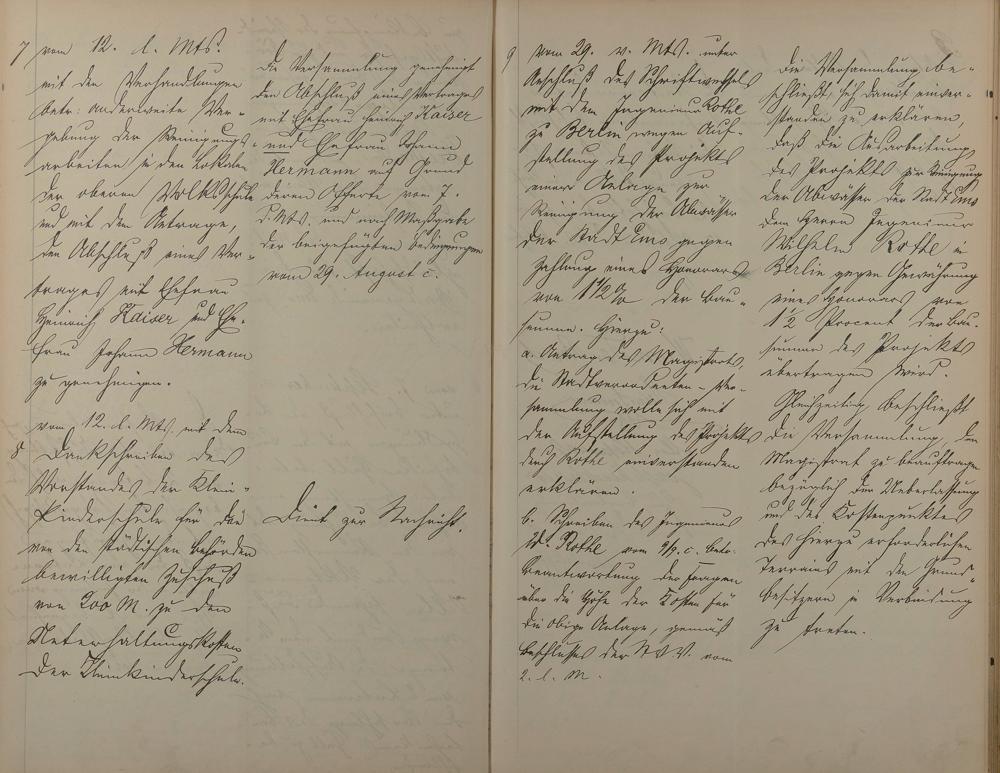 7 vom 12. l. Mts.
mit den Verhandlungen
betr: anderweite Ver-
gebung der Reinigungs-
arbeiten in den Lokalen
der oberen Volksschule
und mit dem Antrage,
den Abschluß eines Ver-
trages mit Ehefrau
Heinrich Kaiser und Ehe-
frau Johann Hermann
zu genehmigen.
Die Versammlung genehmigt
den Abschluß eines Vertrages
mit Ehefrau Heinrich Kaiser
und Ehefrau Johann
Hermann auf Grund
deren Offerte vom 7.
d. Mts. und nach Maßgabe
der beigefügten Bedingungen
vom 29. August c.
8 vom 12. l. Mts. mit dem
Dankschreiben des
Vorstandes der Klein-
kinderschule für den
von den städtischen Behörden
bewilligten Zuschuß
von 200 M. zu den
Unterhaltungskosten
der Kleinkinderschule.
Dient zur Nachricht.
9 vom 29. v. Mts. unter
Anschluß des Schriftwechsels
mit dem Ingenieur Rothe
zu Berlin wegen Auf-
stellung des Projekts
einer Anlage zur
Reinigung der Abwässer
der Stadt Ems gegen
Zahlung eines Honorars
von 1 1/2 % der Bau-
summe. Hierzu:
a. Antrag des Magistrats,
die Stadtverordneten-Ver-
sammlung wolle sich mit
der Aufstellung des Projekts
durch Rothe einverstanden
erklären.
b. Schreiben des Ingenieurs
W. Rothe vom 9/9. c. betr.
Beantwortung der Fragen
über die Höhe der Kosten für
die obige Anlage, gemäß
Beschlusses der St.V.V. vom
2. l. M.
Die Versammlung be-
schließt, sich damit einver-
standen zu erklären,
daß die Ausarbeitung
des Projekts zur Reinigung
der Abwässer der Stadt Ems
dem Herrn Ingenieur
Wilhelm Rothe in
Berlin gegen Gewährung
eines Honorars von
1 1/2 Procent der Bau-
summe des Projekts
übertragen wird.
Gleichzeitig beschließt
die Versammlung, den
Magistrat zu beauftragen
bezüglich der Ueberlassung
und des Kostenpunktes
des hierzu erforderlichen
Terrains mit den Grund-
besitzern in Verbindung
zu treten.